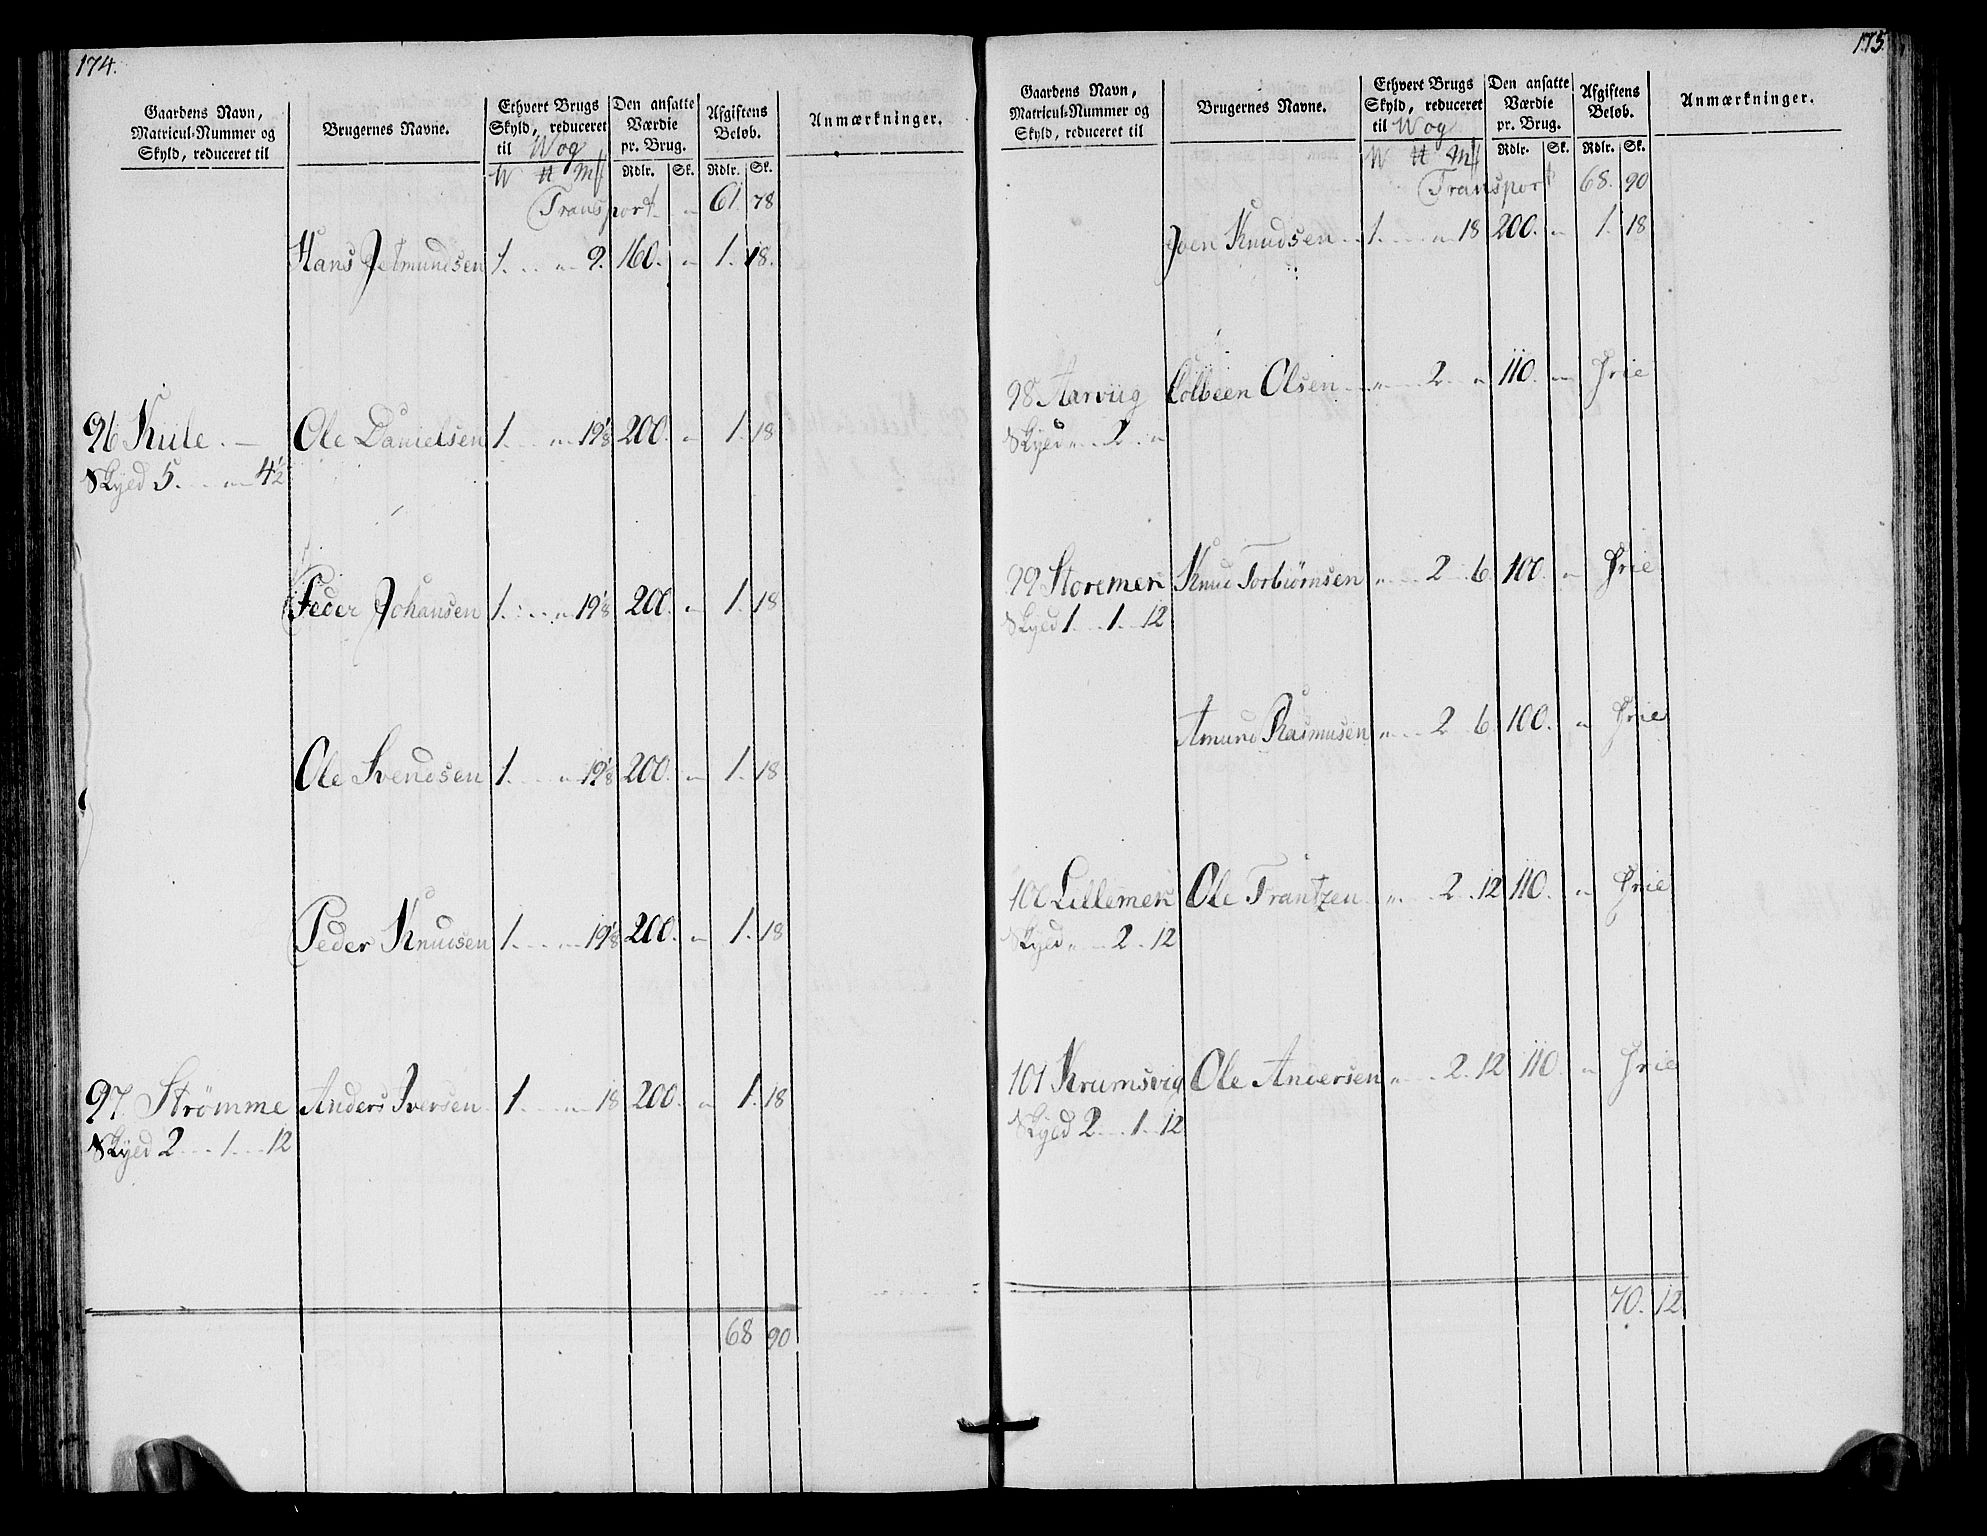 174.
Gaardens Navn, Matricul-Nummer og Skyld, reduceret til
Brugernes Navne.
Ethvert Brugs Skyld, reduceret til Wog
Den ansatte Værdie pr. Brug.
Afgiftens Beløb.
Anmærkninger.
W ℔ Mk Rdlr. Sk. Rdlr. Sk.
Transport " 61. 78
Hans Jetmundsen 1. " 9. 160. " 1. 18.
96 Kule. — Ole Danielsen 1. " 19⅛ 200. " 1. 18
Skyld 5. " 4½
Peder Johansen 1. " 19⅛ 200. " 1. 18
Ole Svendsen 1. " 19⅛ 200. " 1. 18
Peder Knudsen 1. " 19⅛ 200. " 1. 18
97 Strømme Anders Iversen 1. " 18 200. " 1. 18
Skyld 2 1. 12
68 90
175.
Gaardens Navn, Matricul-Nummer og Skyld, reduceret til
Brugernes Navne.
Ethvert Brugs Skyld, reduceret til Wog
Den ansatte Værdie pr. Brug.
Afgiftens Beløb.
Anmærkninger.
W ℔ Mk Rdlr. Sk. Rdlr. Sk.
Transport 68. 90
Iven Knudsen 1. " 18 200. " 1. 18
98 Aarviig Colbeen Olsen " 2. " 110. " Frie
Skyld " 2. "
99 Storemen Knud Torbiørnsen " 2 6. 100. " Frie
Skyld 1. 1. 12
Amund Rasmusen " 2 6. 100. " Frie
100 Lillemen Ole Frantzen " 2. 12 110. " Frie
Skyld " 2. 12
101 Krumsvig Ole Andersen " 2. 12 110. " Frie
Skyld 2 1. 12
70. 12